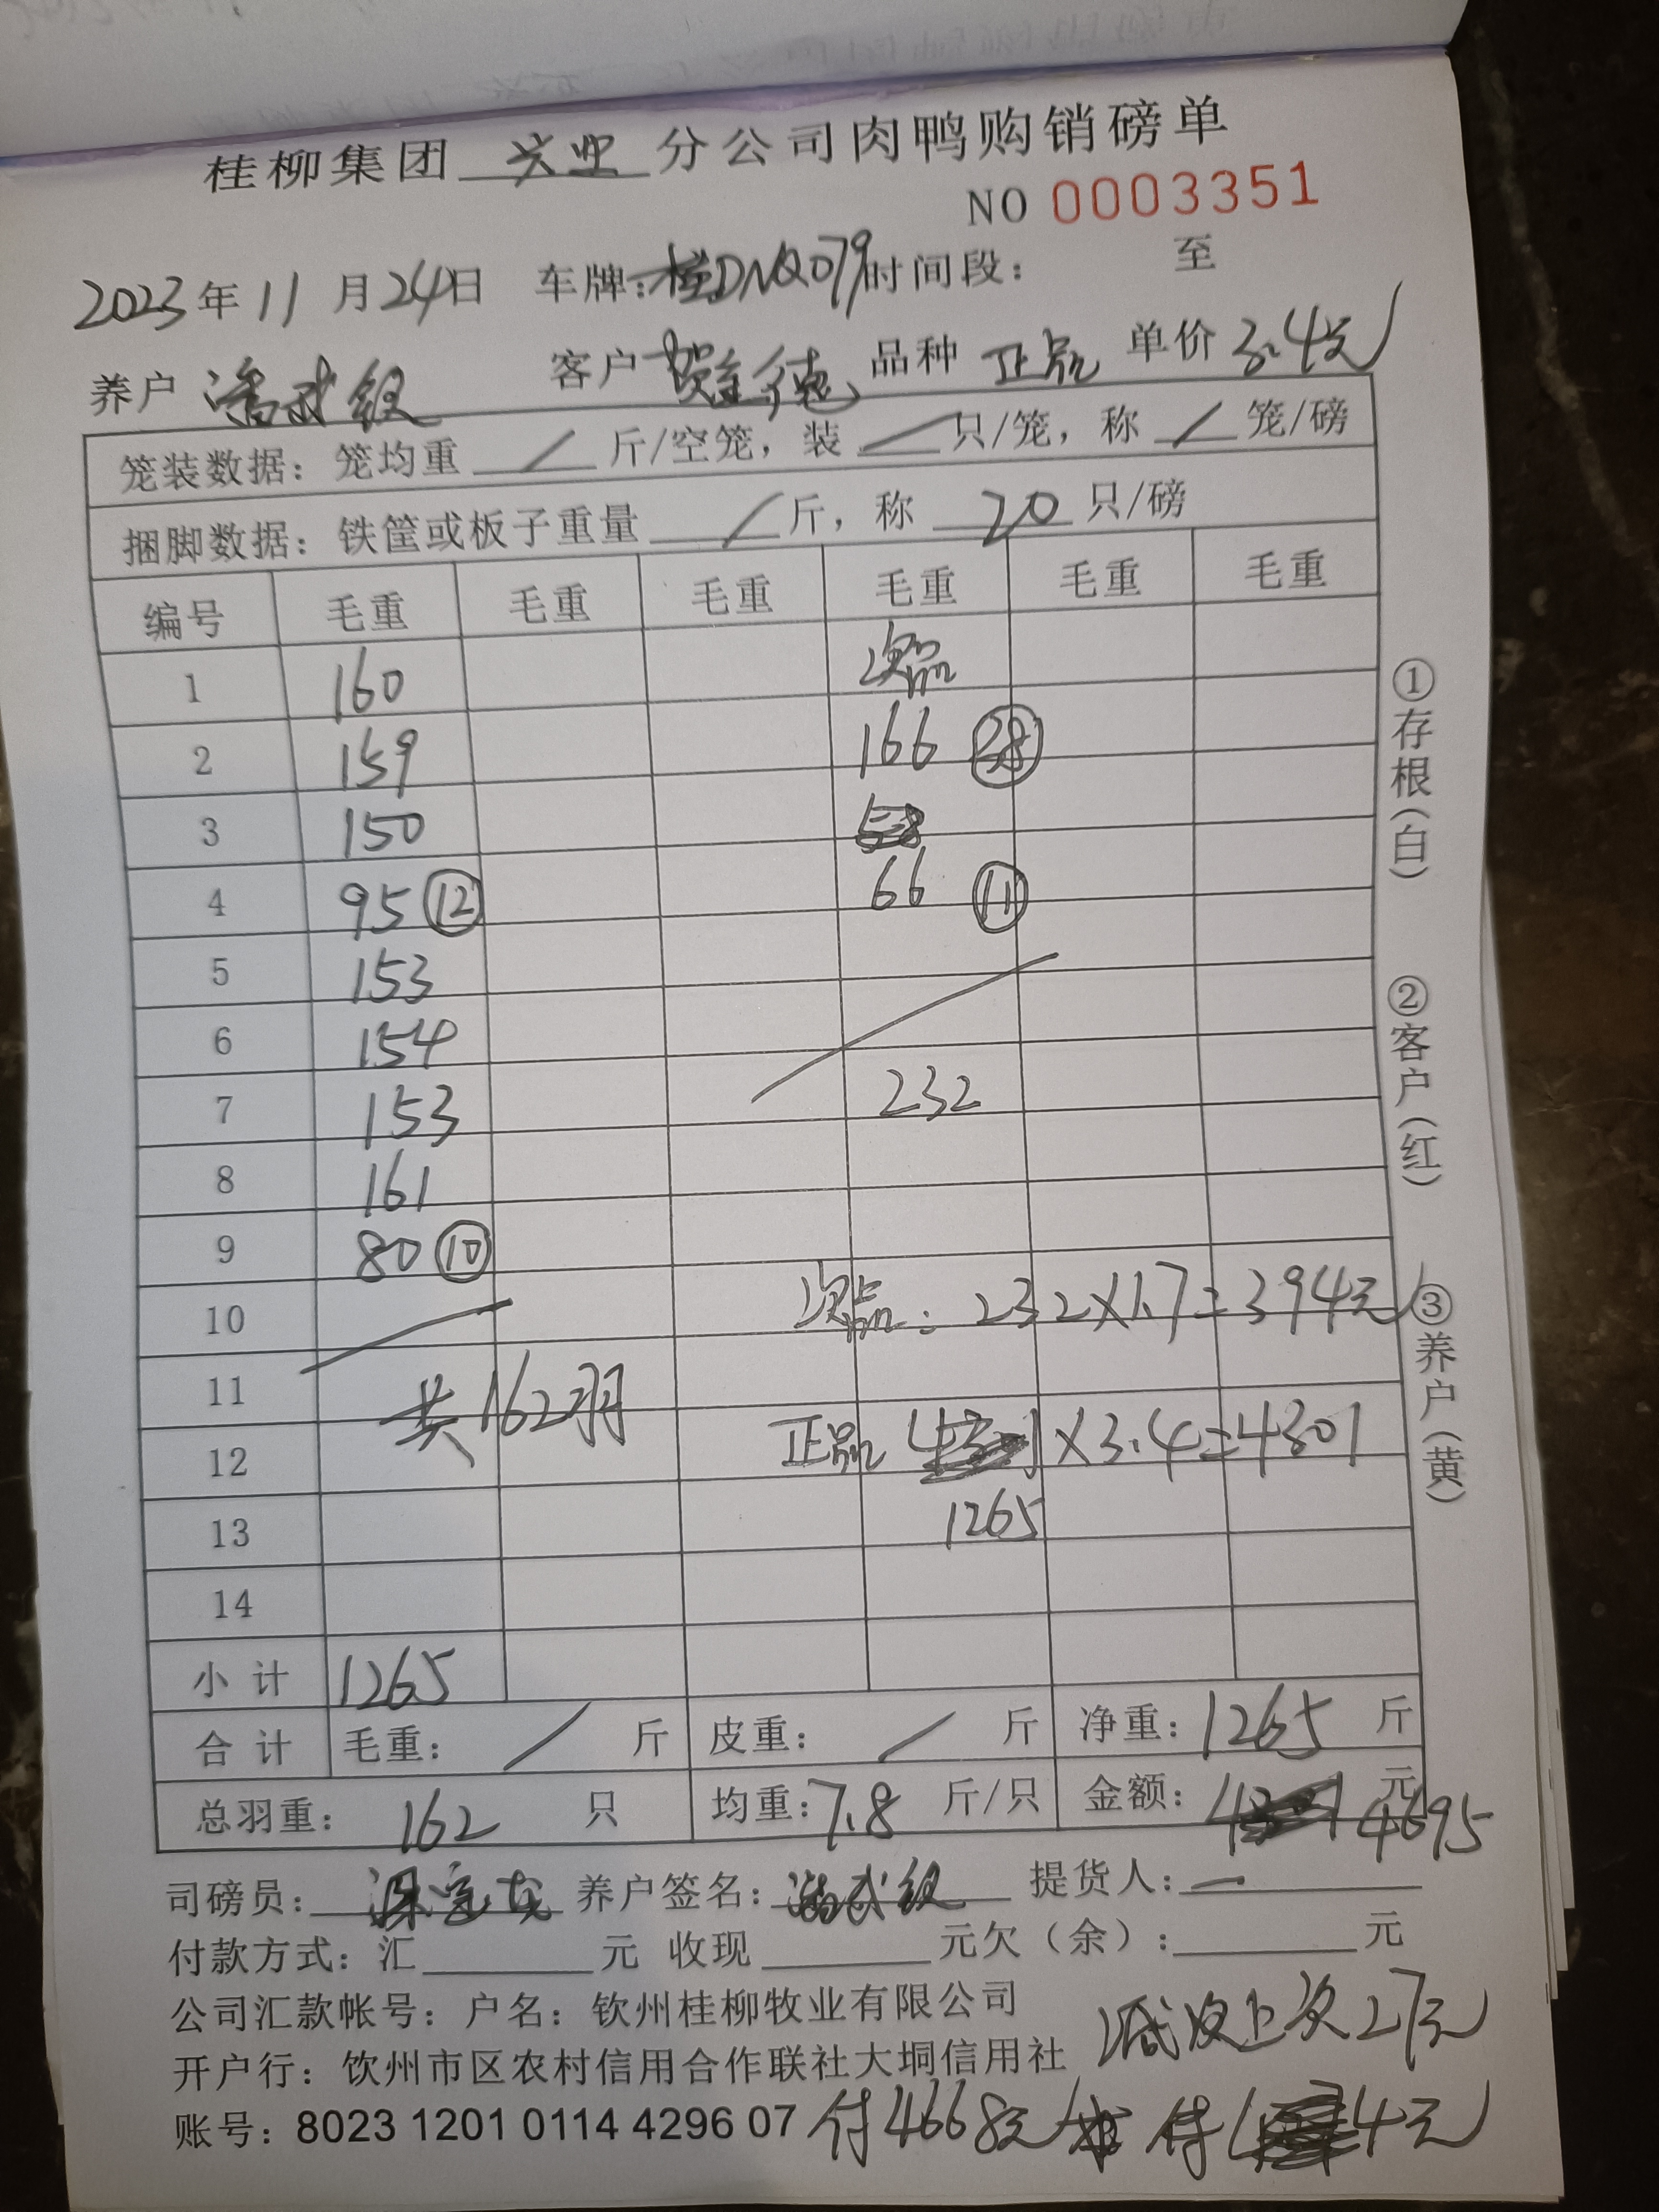 桂柳集团 兴业 分公司肉鸭购销磅单
NO 0003351
2023年11月24日 车牌:桂DNQ079 时间段: 至
养户 潘武级 客户 贺金德 品种 正品 单价 3.4元
笼装数据: 笼均重 / 斤/空笼, 装 / 只/笼, 称 / 笼/磅
捆脚数据: 铁筐或板子重量 / 斤, 称 20 只/磅
编号 毛重 毛重 毛重 毛重 毛重 毛重
1 160 次品
2 159 166
3 150
4 95 ⑫ 66 ⑪
5 153
6 154
7 153 232
8 161
9 80 ⑩
10 次品: 232×1.7=394元
11 共162羽
12 正品 ×3.4=4301
13 1265
14
小计 1265
合计 毛重: / 斤 皮重: / 斤 净重: 1265 斤
总羽重: 162 只 均重: 7.8 斤/只 金额: 元 4695
司磅员: 养户签名: 潘武级 提货人: 一
付款方式: 汇 元 收现 元欠(余): 元
公司汇款帐号: 户名: 钦州桂柳牧业有限公司
减去上次27元
开户行: 钦州市区农村信用合作联社大垌信用社
账号: 8023 1201 0114 4296 07 付4668元
①存根(白)
②客户(红)
③养户(黄)